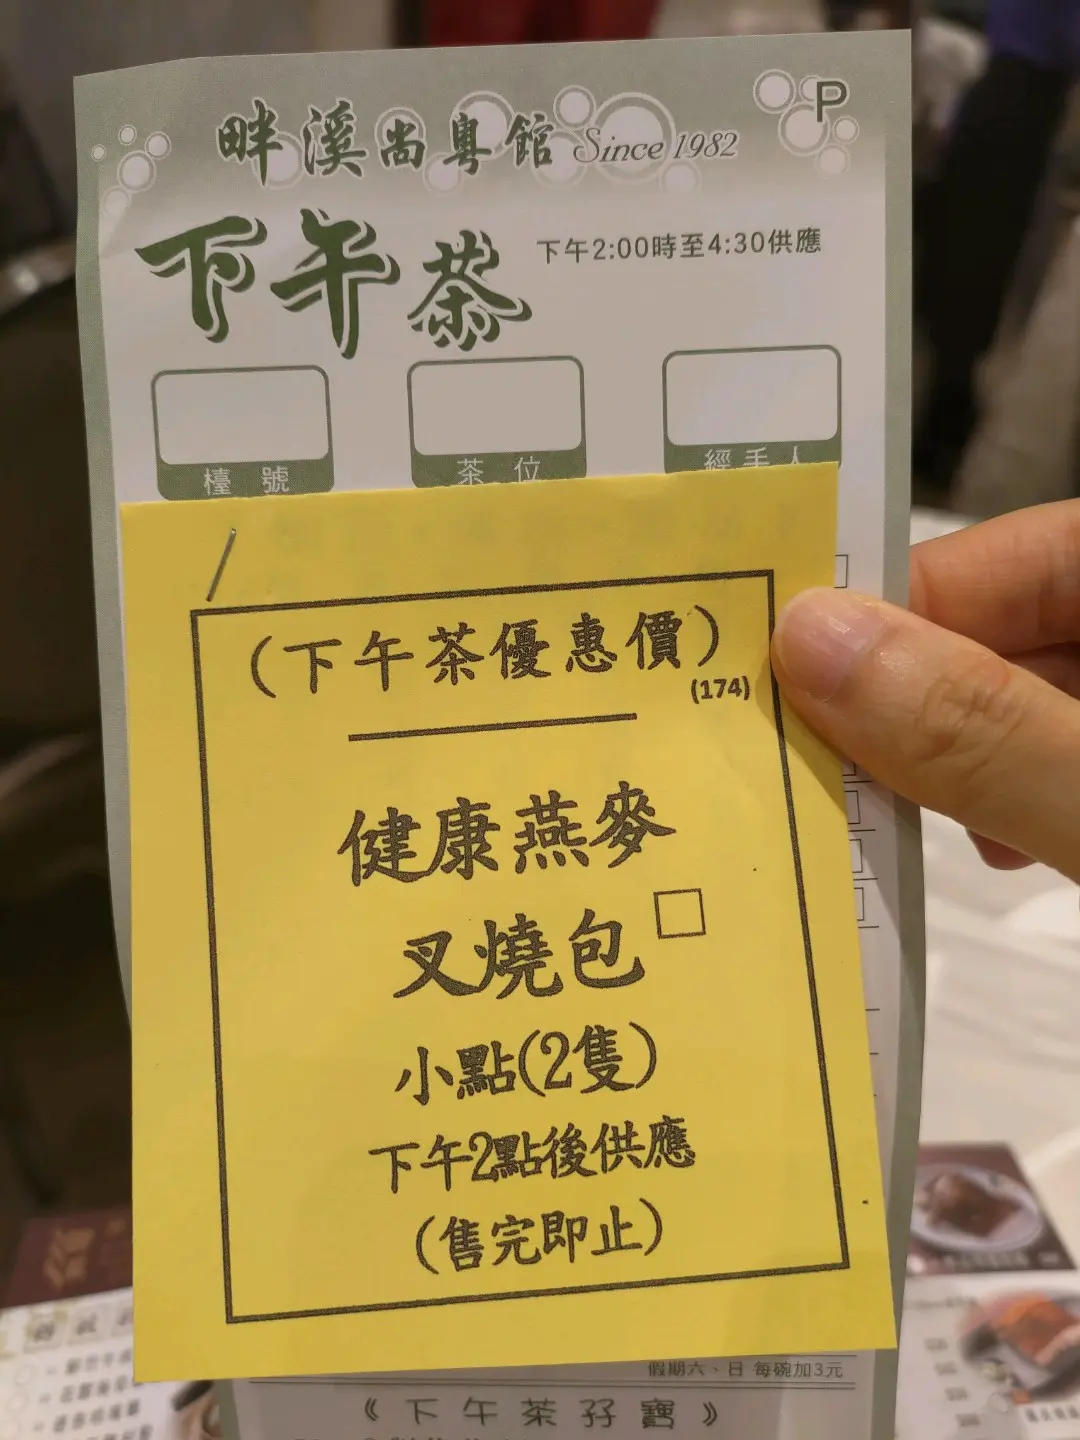 畔溪尚粵館 Since 1982
P
下午茶 下午2:00時至4:30供應
檯號 茶位 經手人
(下午茶優惠價)
(174)
健康燕麥
叉燒包□
小點(2隻)
下午2點後供應
(售完即止)
假期六、日 每碗加3元
《下午茶孖寶》